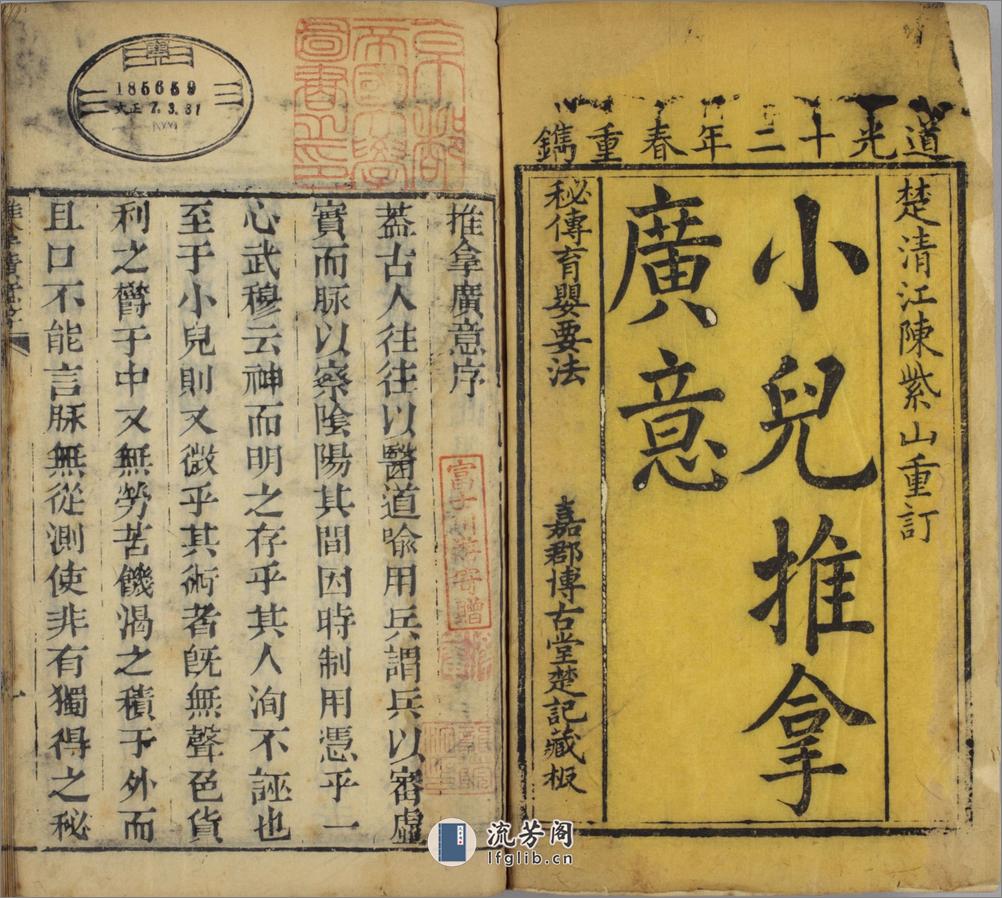 道光十二年春重鐫
楚清江陳紫山重訂
小兒推拿
廣意
秘傳育嬰要法
嘉郡博古堂楚記藏板
京都
帝國大學
圖書之印
185659
大正7.3.31
推拿廣意序
蓋古人往往以醫道喩用兵謂兵以審虛
實而脉以察陰陽其間因時制用憑乎一
心武穆云神而明之存乎其人洵不誣也
至于小兒則又微乎其術者旣無聲色貨
利之欝于中又無勞苦饑渴之積于外而
且口不能言脉無從測使非有獨得之秘
寄贈
流芳阁
lfglib.cn